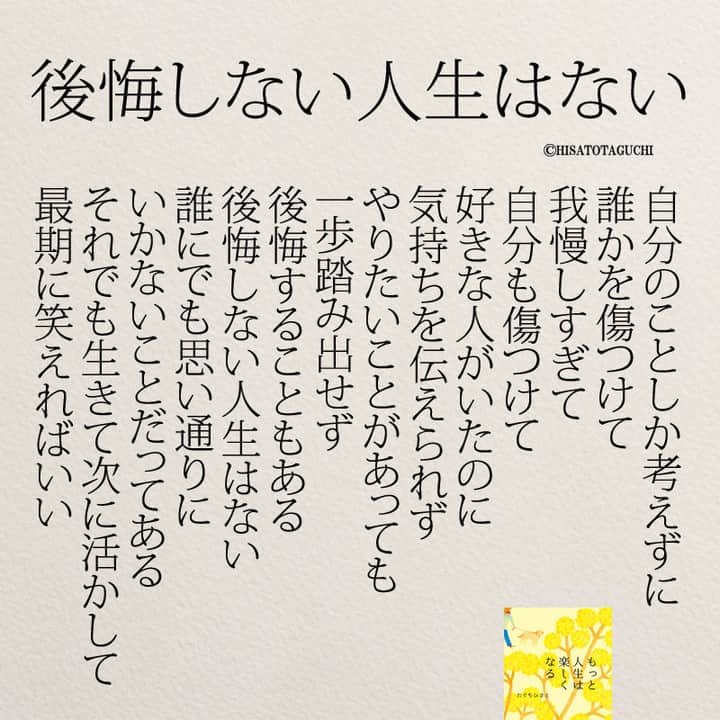 後悔しない人生はない
©HISATOTAGUCHI
自分のことしか考えずに
誰かを傷つけて
我慢しすぎて
自分も傷つけて
好きな人がいたのに
気持ちを伝えられず
やりたいことがあっても
一歩踏み出せず
後悔することもある
後悔しない人生はない
誰にでも思い通りに
いかないことだってある
それでも生きて次に活かして
最期に笑えればいい
もっと
人生は
楽しく
なる
たぐちひさと